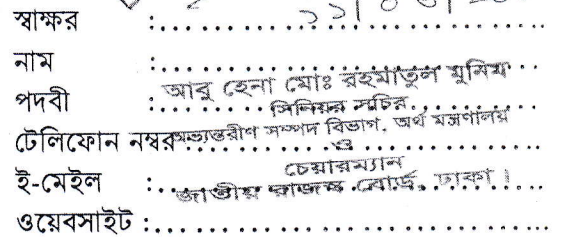 স্বাক্ষর :
নাম :
আবু হেনা মোঃ রহমাতুল মুনিম
পদবী :
সিনিয়র সচিব
টেলিফোন নম্বর
অভ্যন্তরীণ সম্পদ বিভাগ, অর্থ মন্ত্রণালয়
ও
চেয়ারম্যান
ই-মেইল :
জাতীয় রাজস্ব বোর্ড, ঢাকা।
ওয়েবসাইট :